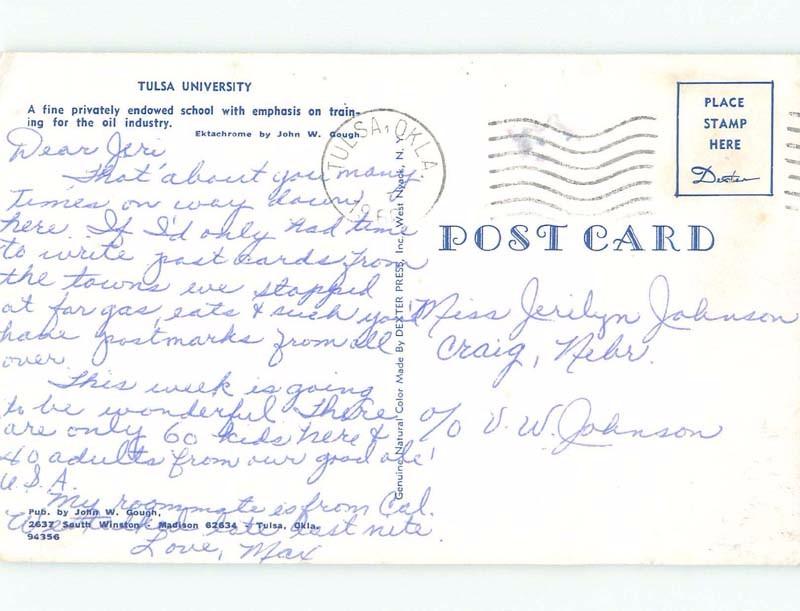 TULSA UNIVERSITY
A fine privately endowed school with emphasis on train-
ing for the oil industry.
Ektachrome by John W. Gough
Dear Jeri
That about you many
times on way down
here. If I'd only had time
to write post cards from
the towns we stopped
at for gas, eats & such you'd
have postmarks from all
over.
This week is going
to be wonderful. There
are only 60 kids here &
40 adults from our good ole'
U.S.A.
My roommate is from Cal.
We talked late last nite.
Love, Max
Pub. by John W. Gough,
2637 South Winston - Madison 62634 - Tulsa, Okla.
94356
Genuine Natural Color Made By DEXTER PRESS, Inc., West Nyack, N. Y.
TULSA, OKLA.
PLACE
STAMP
HERE
Dexter
POST CARD
Miss Jerilyn Johnson
Craig, Nebr.
c/o V. W. Johnson